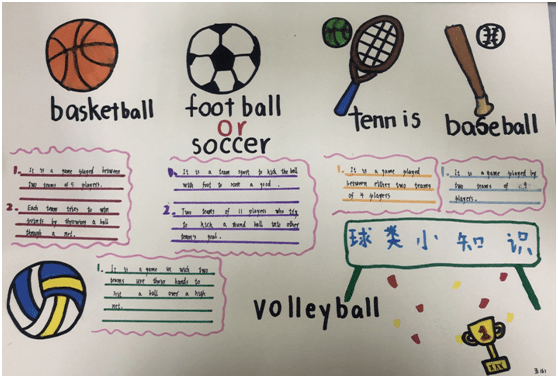 basketball
foot ball
or
soccer
tennis
baseball
1. It is a game played between
two teams of 5 players.
2. Each team tries to win
by throwing a ball
through a net.
1. It is a team sport to kick the ball
with foot to score a goal.
2. Two teams of 11 players who try
to kick a round ball into other
team's goal.
1. It is a game played
between either two teams
of 4 players
1. It is a game played by
two teams of 9
players.
球类小知识
1. It is a game in wich two
teams use their hands to
hit a ball over a high
net.
volleyball
1